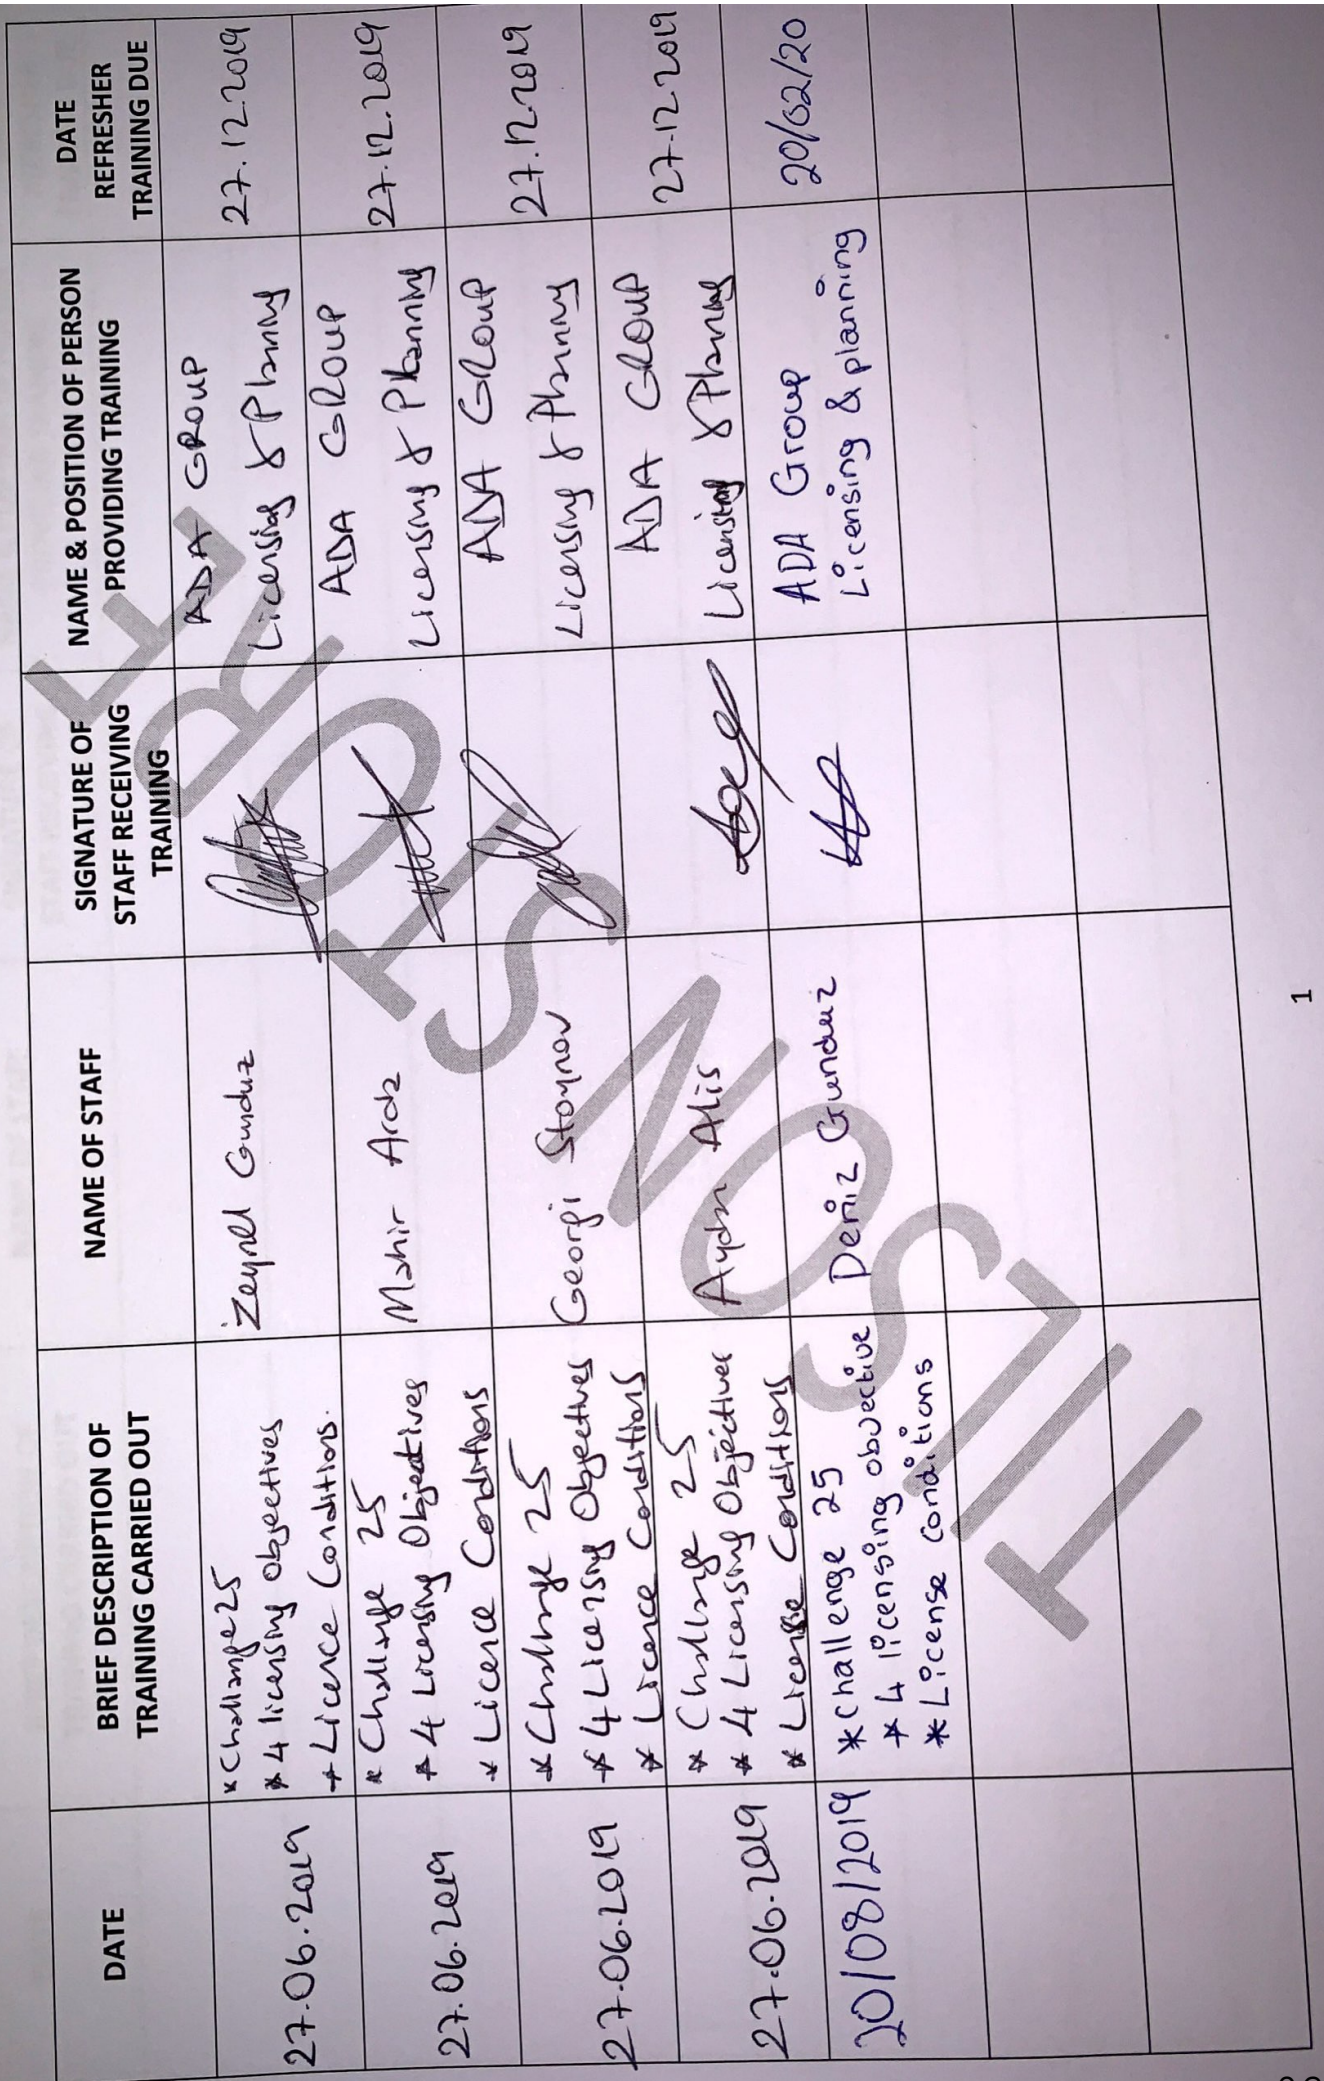 DATE
BRIEF DESCRIPTION OF
TRAINING CARRIED OUT
NAME OF STAFF
SIGNATURE OF
STAFF RECEIVING
TRAINING
NAME & POSITION OF PERSON
PROVIDING TRAINING
DATE
REFRESHER
TRAINING DUE
27.06.2019
* Challange 25
* 4 licensing objectives
* Licence Conditions.
Zeynel Gunduz
ADA GROUP
Licensing & Planning
27.12.2019
27.06.2019
* Challange 25
* 4 Licensing Objectives
* Licence Conditions
Mahir Araz
ADA GROUP
Licensing & Planning
27.12.2019
27.06.2019
* Challange 25
* 4 Licensing Objectives
* Licence Conditions
Georgi Stoynov
ADA GROUP
Licensing & Planning
27.12.2019
27.06.2019
* Challange 25
* 4 Licensing Objectives
* License Conditions
Aydin Alis
ADA GROUP
Licensing & Planning
27.12.2019
20/08/2019
* Challenge 25
* 4 licensing objective
* License conditions
Deniz Gunduz
ADA Group
Licensing & planning
20/02/20
TILSONS HORT
1